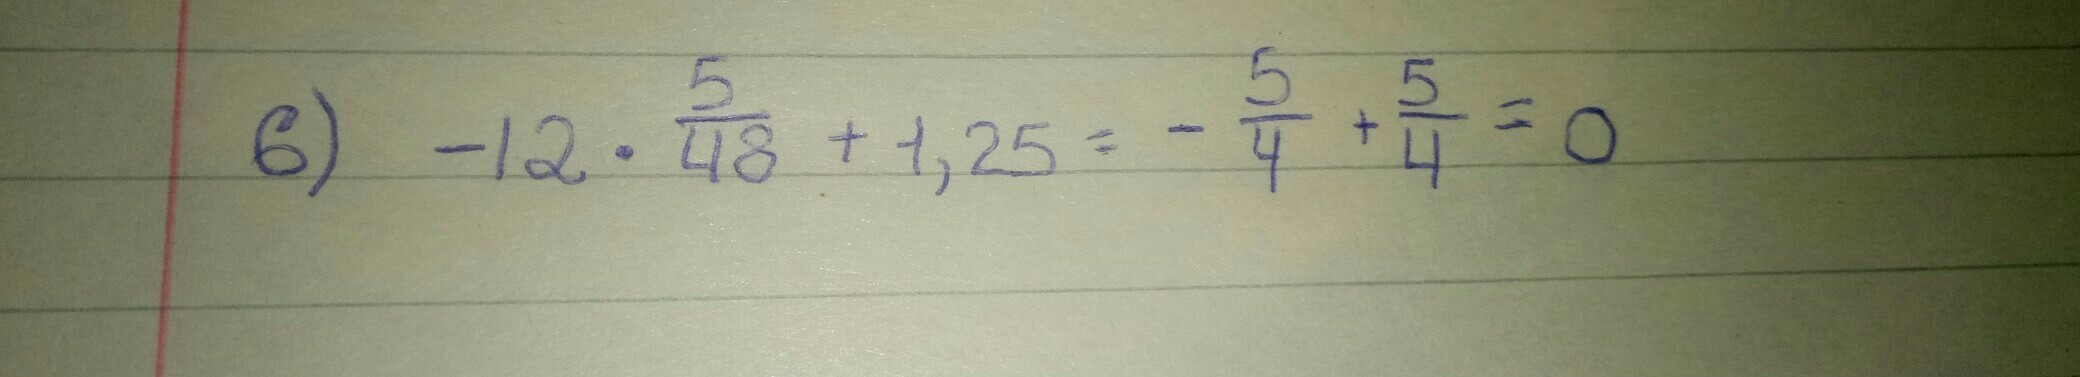 6) -12 · 5/48 + 1,25 = - 5/4 + 5/4 = 0